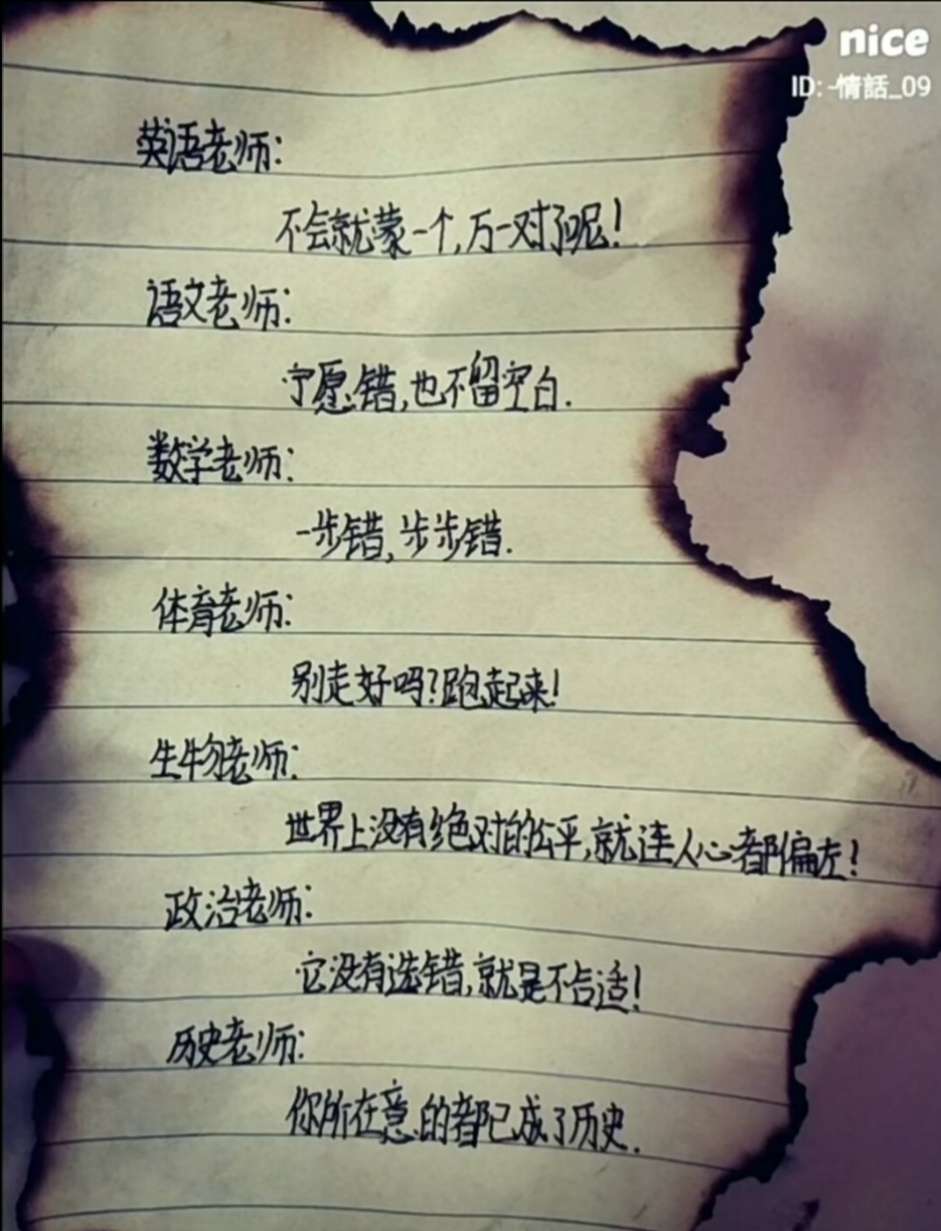 nice
ID: -情話_09
英语老师:
不会就蒙一个,万一对了呢!
语文老师:
宁愿错,也不留空白.
数学老师:
一步错,步步错.
体育老师:
别走好吗?跑起来!
生物老师:
世界上没有绝对的公平,就连人心都偏左!
政治老师:
它没有选错,就是不合适!
历史老师:
你所在意的都已成了历史.